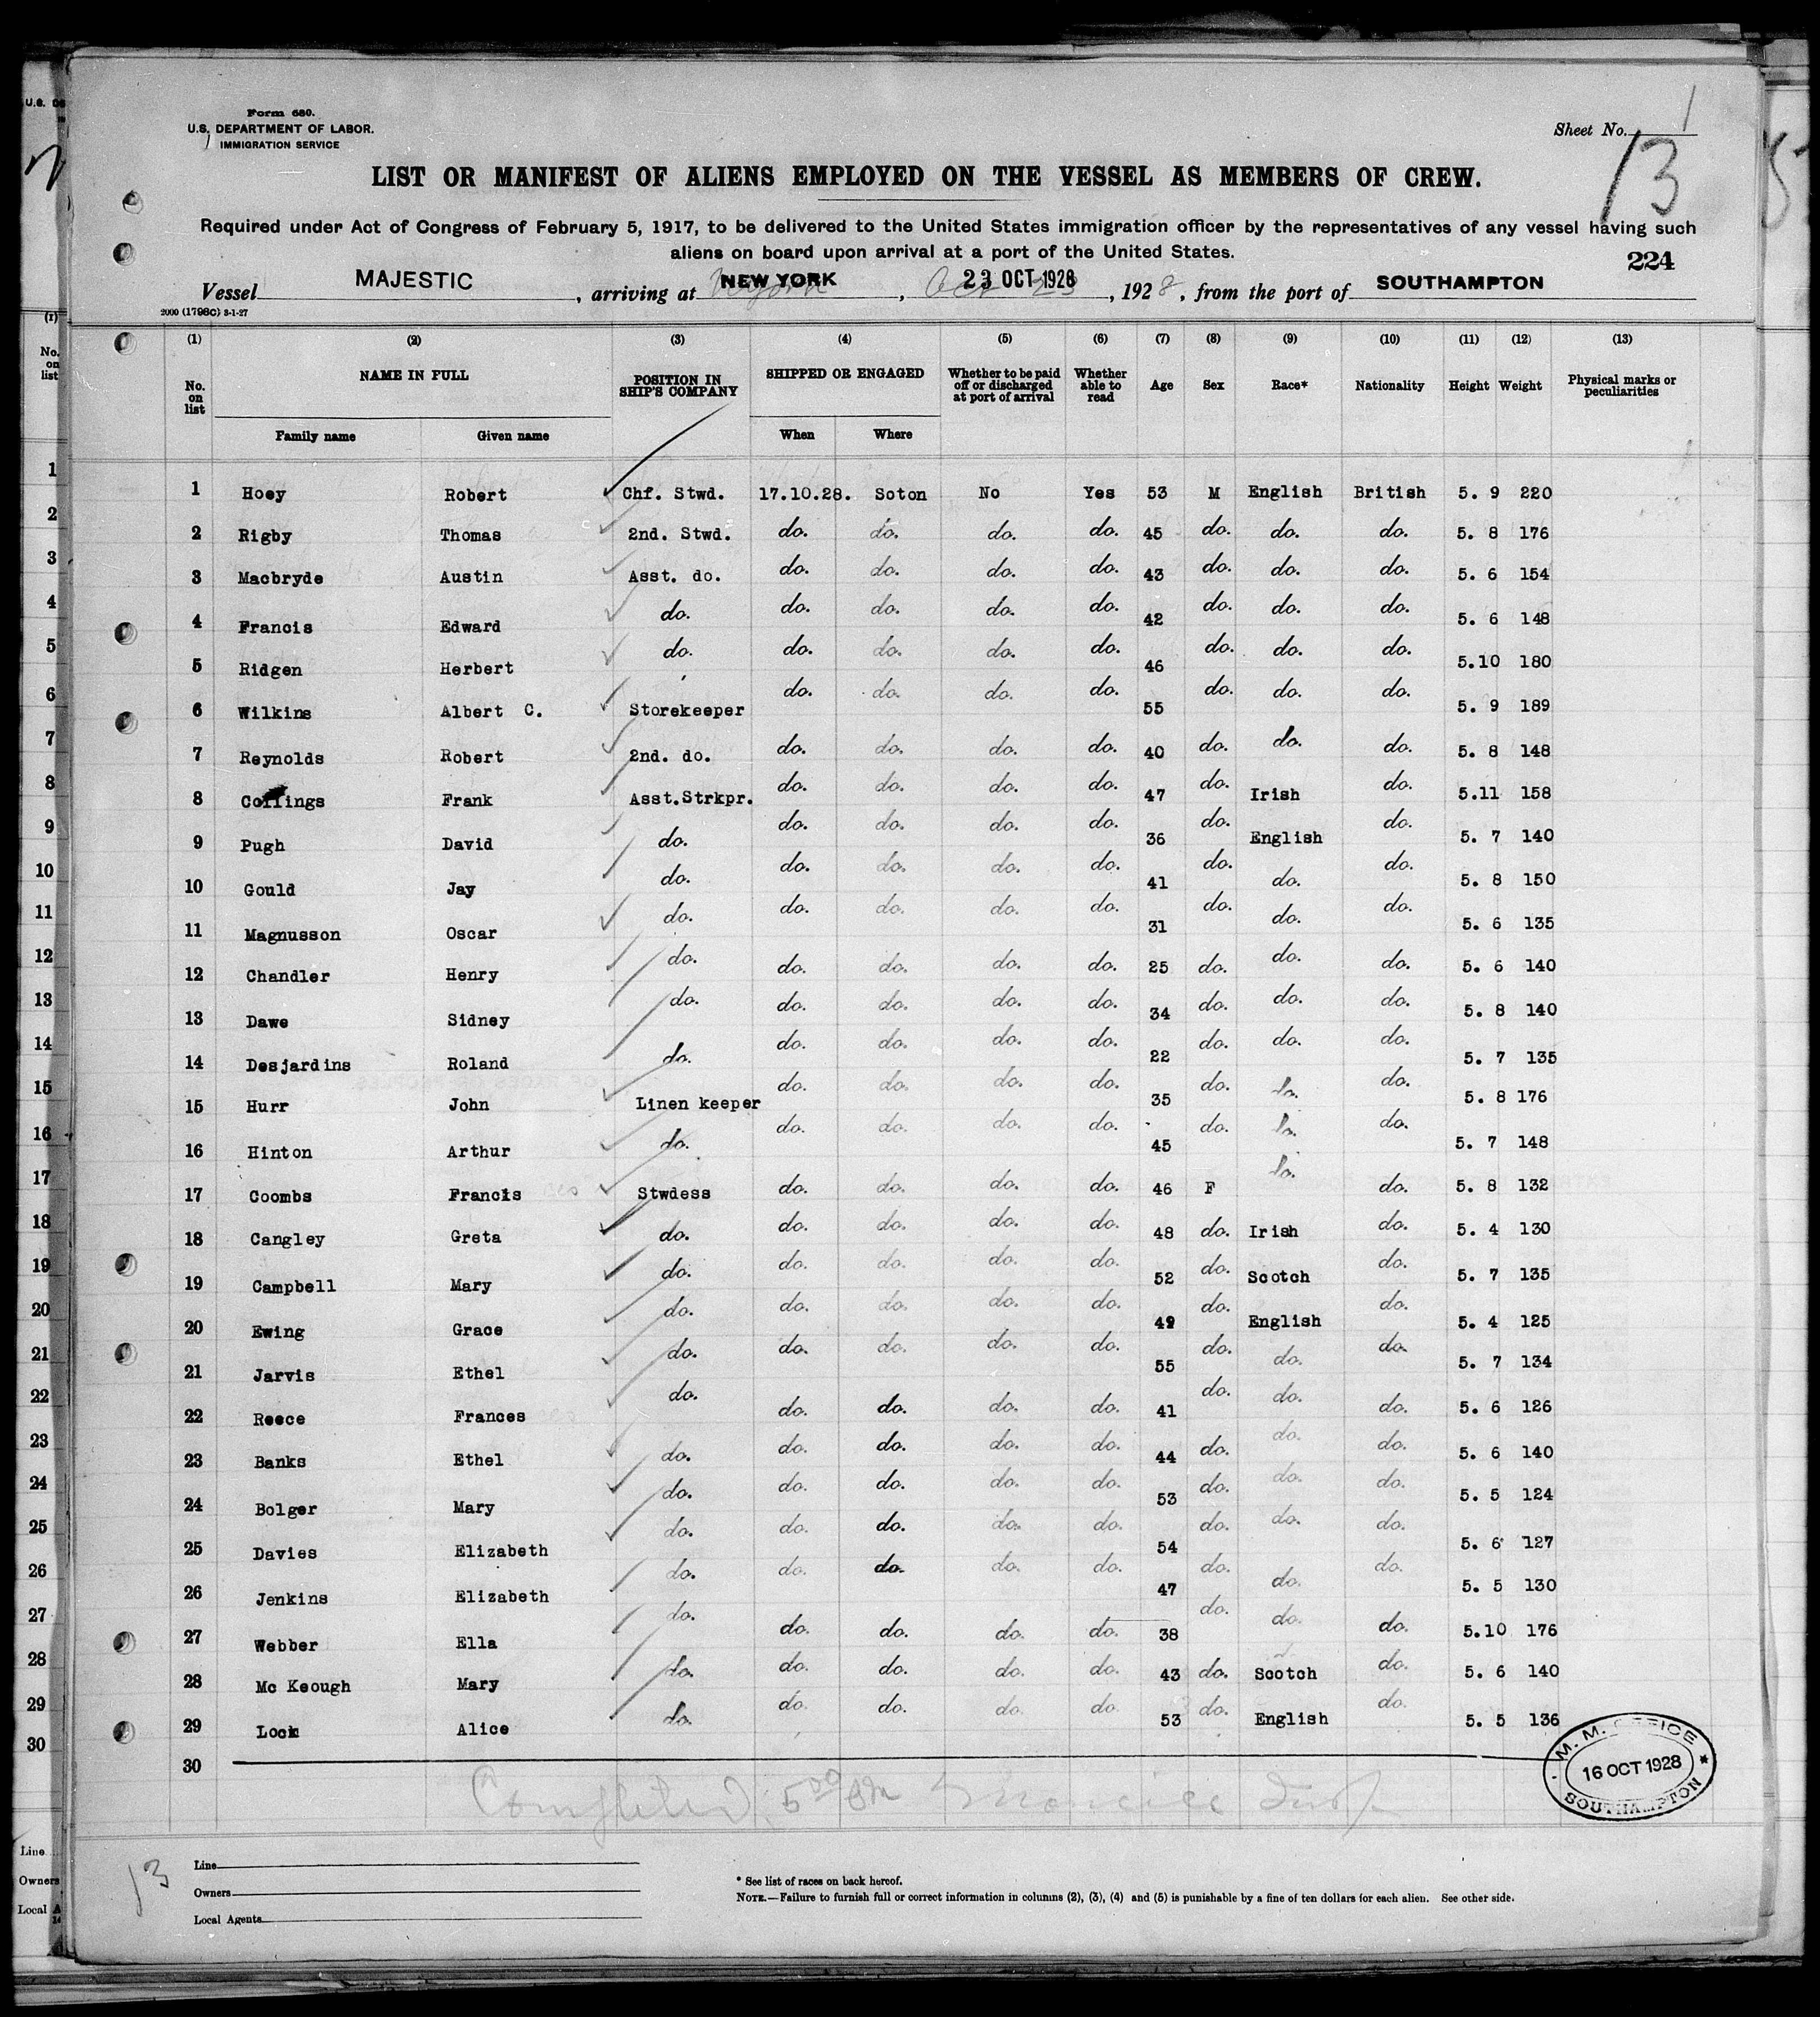 Form 680.
U.S. DEPARTMENT OF LABOR.
IMMIGRATION SERVICE
Sheet No. 1
13
LIST OR MANIFEST OF ALIENS EMPLOYED ON THE VESSEL AS MEMBERS OF CREW.
Required under Act of Congress of February 5, 1917, to be delivered to the United States immigration officer by the representatives of any vessel having such
aliens on board upon arrival at a port of the United States.
224
Vessel MAJESTIC, arriving at NEW YORK, 23 OCT 1928, 1928, from the port of SOUTHAMPTON
2000 (1798C) 3-1-27
(1) (2) (3) (4) (5) (6) (7) (8) (9) (10) (11) (12) (13)
No. on list NAME IN FULL POSITION IN SHIP'S COMPANY SHIPPED OR ENGAGED Whether to be paid off or discharged at port of arrival Whether able to read Age Sex Race* Nationality Height Weight Physical marks or peculiarities
Family name Given name When Where
1 Hoey Robert Chf. Stwd. 17.10.28. Soton No Yes 53 M English British 5. 9 220
2 Rigby Thomas 2nd. Stwd. do. do. do. do. 45 do. do. do. 5. 8 176
3 Macbryde Austin Asst. do. do. do. do. do. 43 do. do. do. 5. 6 154
4 Francis Edward do. do. do. do. do. 42 do. do. do. 5. 6 148
5 Ridgen Herbert do. do. do. do. do. 46 do. do. do. 5.10 180
6 Wilkins Albert C. Storekeeper do. do. do. do. 55 do. do. do. 5. 9 189
7 Reynolds Robert 2nd. do. do. do. do. do. 40 do. do. do. 5. 8 148
8 Collings Frank Asst.Strkpr. do. do. do. do. 47 do. Irish do. 5.11 158
9 Pugh David do. do. do. do. do. 36 do. English do. 5. 7 140
10 Gould Jay do. do. do. do. do. 41 do. do. do. 5. 8 150
11 Magnusson Oscar do. do. do. do. do. 31 do. do. do. 5. 6 135
12 Chandler Henry do. do. do. do. do. 25 do. do. do. 5. 6 140
13 Dawe Sidney do. do. do. do. do. 34 do. do. do. 5. 8 140
14 Desjardins Roland do. do. do. do. do. 22 do. do. do. 5. 7 135
15 Hurr John Linen keeper do. do. do. do. 35 do. do. do. 5. 8 176
16 Hinton Arthur do. do. do. do. do. 45 do. do. do. 5. 7 148
17 Coombs Francis Stwdess do. do. do. do. 46 F do. do. 5. 8 132
18 Cangley Greta do. do. do. do. do. 48 do. Irish do. 5. 4 130
19 Campbell Mary do. do. do. do. do. 52 do. Scotch do. 5. 7 135
20 Ewing Grace do. do. do. do. do. 49 do. English do. 5. 4 125
21 Jarvis Ethel do. do. do. do. do. 55 do. do. do. 5. 7 134
22 Reece Frances do. do. do. do. do. 41 do. do. do. 5. 6 126
23 Banks Ethel do. do. do. do. do. 44 do. do. do. 5. 6 140
24 Bolger Mary do. do. do. do. do. 53 do. do. do. 5. 5 124
25 Davies Elizabeth do. do. do. do. do. 54 do. do. do. 5. 6 127
26 Jenkins Elizabeth do. do. do. do. do. 47 do. do. do. 5. 5 130
27 Webber Ella do. do. do. do. do. 38 do. do. do. 5.10 176
28 Mc Keough Mary do. do. do. do. do. 43 do. Scotch do. 5. 6 140
29 Lock Alice do. do. do. do. do. 53 do. English do. 5. 5 136
30
M. M. OFFICE
16 OCT 1928
SOUTHAMPTON
Completed
13
Line
Owners
Local Agents
* See list of races on back hereof.
NOTE.—Failure to furnish full or correct information in columns (2), (3), (4) and (5) is punishable by a fine of ten dollars for each alien. See other side.